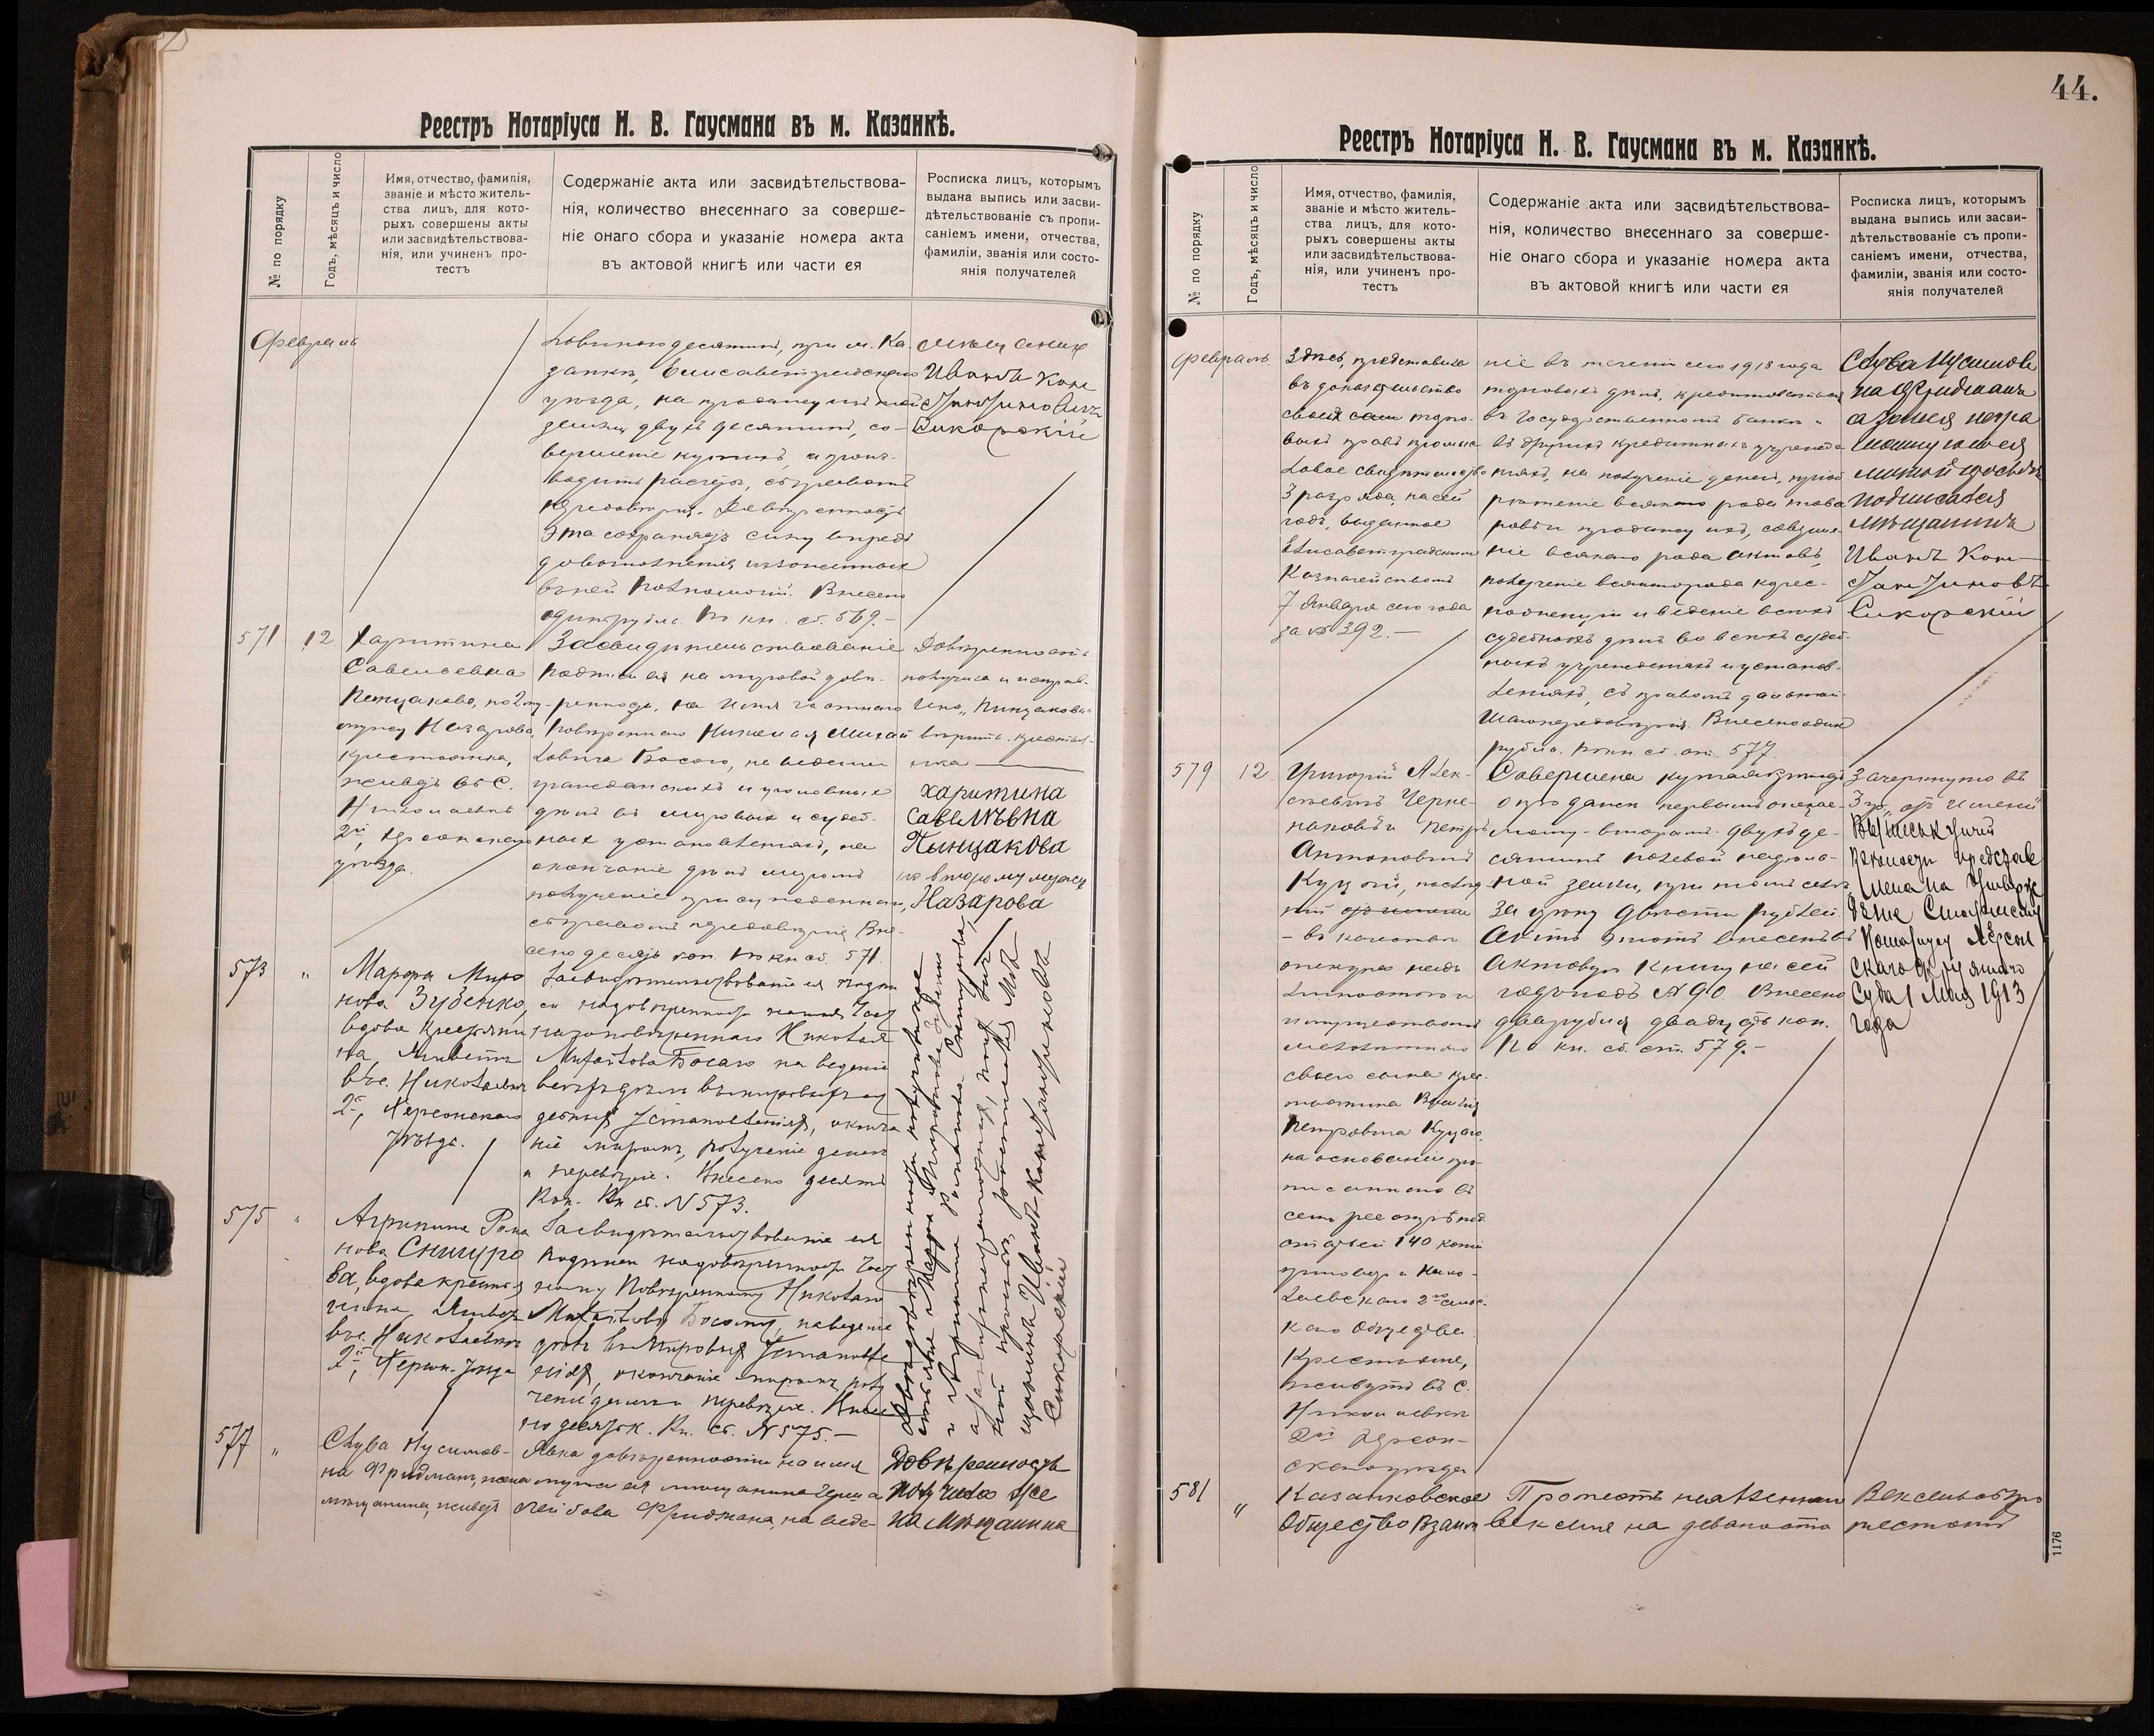 Реестръ Нотаріуса Н. В. Гаусмана въ м. Казанкѣ.
№ по порядку
Годъ, мѣсяцъ и число
Имя, отчество, фамилія,
званіе и мѣсто житель-
ства лицъ, для кото-
рыхъ совершены акты
или засвидѣтельствова-
нія, или учиненъ про-
тестъ
Содержаніе акта или засвидѣтельствова-
нія, количество внесеннаго за соверше-
ніе онаго сбора и указаніе номера акта
въ актовой книгѣ или части ея
Росписка лицъ, которымъ
выдана выпись или засви-
дѣтельствованіе съ пропи-
саніемъ имени, отчества,
фамиліи, званія или состо-
янія получателей
Февраль
десятинъ, при м. Ка-
занкѣ, Елисаветградскаго
уѣзда, на продажу
земли двухъ десятинъ, со-
вершеніе купчихъ, и произ-
водить расчеты, съ правомъ
передовѣрія. Довѣренность
эта сохраняетъ силу впредь
до
въ ней полномочій. Внесено
одинъ рубль. По кн. сб. 569.-
Иванъ Кон
стантиновичъ
Сикорскій
571
12
Харитина
Савельевна
по 2му
мужу Назарова,
крестьянка,
живетъ въ с.
Николаевкѣ
2й, Херсонскаго
уѣзда.
Засвидѣтельствованіе
подписи ея на довѣ-
ренности, на имя частнаго
повѣреннаго Николая Михай
ловича Босого, на веденіе
гражданскихъ и уголовныхъ
дѣлъ въ мировыхъ и судеб-
ныхъ установленіяхъ, на
окончаніе дѣлъ миромъ
полученіе присужденнаго,
съ правомъ передовѣрія. Вне-
сено десять коп. По кн сб. 571.
Довѣренность
получила и исправ-
лено „Пинцакова"
вѣрить. крестьян-
ка
харитина
савелѣвна
Пынцакова
по второму мужу
Назарова
573
"
Марфа Миро
нова Зубенко,
вдова крестьяни
на, живетъ
въ с. Николаевкѣ
2й, Херсонскаго
уѣзда.
Засвидѣтельствованіе ея подпи
си на довѣренности на имя част
наго повѣреннаго Николая
Михайлова Босаго на веденіе
всѣхъ дѣлъ въ мировыхъ су
дебныхъ установленіяхъ, оконча
ніе миромъ, полученіе денегъ
и перевѣріе. Внесено десять
коп. Кн сб. N 573.
575
"
Агрипина Рома
нова Снигуро
ва, вдова крестья
нина живетъ
въ с. Николаевкѣ
2й, Херсон. уѣзда
Засвидѣтельствованіе ея
подписи на довѣренности част
ному повѣренному Николаю
Михайлову Босому, на веденіе
дѣлъ въ мировыхъ установле
ніяхъ, окончаніе миромъ, полу
ченіе денегъ и перевѣріе. Внесе
но десять к. Кн. сб. N 575.-
Довѣренности получили кре
стьянки Марфа Миронова Зубенко
и Агрипина Романова Снигурова,
а за неграмотныхъ, по ихъ лич
ной просьбѣ, росписался мѣ
щанинъ Иванъ Константиновъ
Сикорскій
577
"
Слува Нусимов-
на Фридманъ, жена
мѣщанина, живетъ
Явка довѣренности на имя
мужа ея мѣщанина
Лейбова Фридмана, на веде-
Довѣренность
получила же
на мѣщанина
44.
Реестръ Нотаріуса Н. В. Гаусмана въ м. Казанкѣ.
№ по порядку
Годъ, мѣсяцъ и число
Имя, отчество, фамилія,
званіе и мѣсто житель-
ства лицъ, для кото-
рыхъ совершены акты
или засвидѣтельствова-
нія, или учиненъ про-
тестъ
Содержаніе акта или засвидѣтельствова-
нія, количество внесеннаго за соверше-
ніе онаго сбора и указаніе номера акта
въ актовой книгѣ или части ея
Росписка лицъ, которымъ
выдана выпись или засви-
дѣтельствованіе съ пропи-
саніемъ имени, отчества,
фамиліи, званія или состо-
янія получателей
Февраль
здѣсь, представила
въ доказательство
своихъ торго-
выхъ правъ промыс
ловое свидѣтельство
3 разряда, на сей
годъ, выданное
Елисаветградскимъ
Казначействомъ
7 Января сего года
за № 392.-
ніе въ теченіи сего 1913 года
торговыхъ дѣлъ, кредитоваться
въ Государственномъ банкѣ и
въ другихъ кредитныхъ учрежде-
ніяхъ, на полученіе денегъ, пріоб
рѣтеніе всякаго рода това
ровъ и продажу ихъ, соверше-
ніе всякаго рода актовъ,
полученіе всякаго рода коррес-
понденціи и веденіе всѣхъ
судебныхъ дѣлъ во всѣхъ судеб-
ныхъ учрежденіяхъ и установ-
леніяхъ, съ правомъ дальнѣй-
шаго передовѣрія. Внесено одинъ
рубль. По кн. сб. ст. 577.
Слува Нусимов
на Фридманъ
а за нея негра
мотную по ея
личной просьбѣ
подписался
мѣщанинъ
Иванъ Кон-
стантиновъ
Сикорскій
579
12
Григорій Алек-
сѣевичъ Черне-
наковъ и Петръ
Антоновичъ
Куцый,
- въ качествѣ
опекуна надъ
личностью и
имуществомъ
малолѣтняго
своего сына крес-
тьянина
Петровича Куцаго,
на основаніи про-
писаннаго въ
семъ реестрѣ под
статьей 140 копіи
приговора Нико-
лаевскаго 2го сельс-
каго Общества
Крестьяне,
живутъ въ с.
Николаевкѣ
2й Херсон-
скаго уѣзда
Совершена купчая крѣпость
о продажѣ первымъ опекае-
мому-второмъ двухъ де-
сятинъ полевой надѣль-
ной земли, при томъ селѣ,
за цѣну двѣсти рублей.
Актъ этотъ внесенъ въ
Актовую книгу на сей
годъ подъ № 90. Внесено
два рубля двадцать коп.
По кн. сб. ст. 579.-
Зачеркнуто въ
3 гр. „отъ имени"
Выпись купчей
крѣпости представ
лена на утверж
деніе Старшему
Нотаріусу Херсон
скаго Окружнаго
Суда 1 Мая 1913
года
581
"
Казанковское
Общество Взаимн
Протестъ неоплаченнаго
векселя на девяносто
Вексель съ про
тестомъ
1176